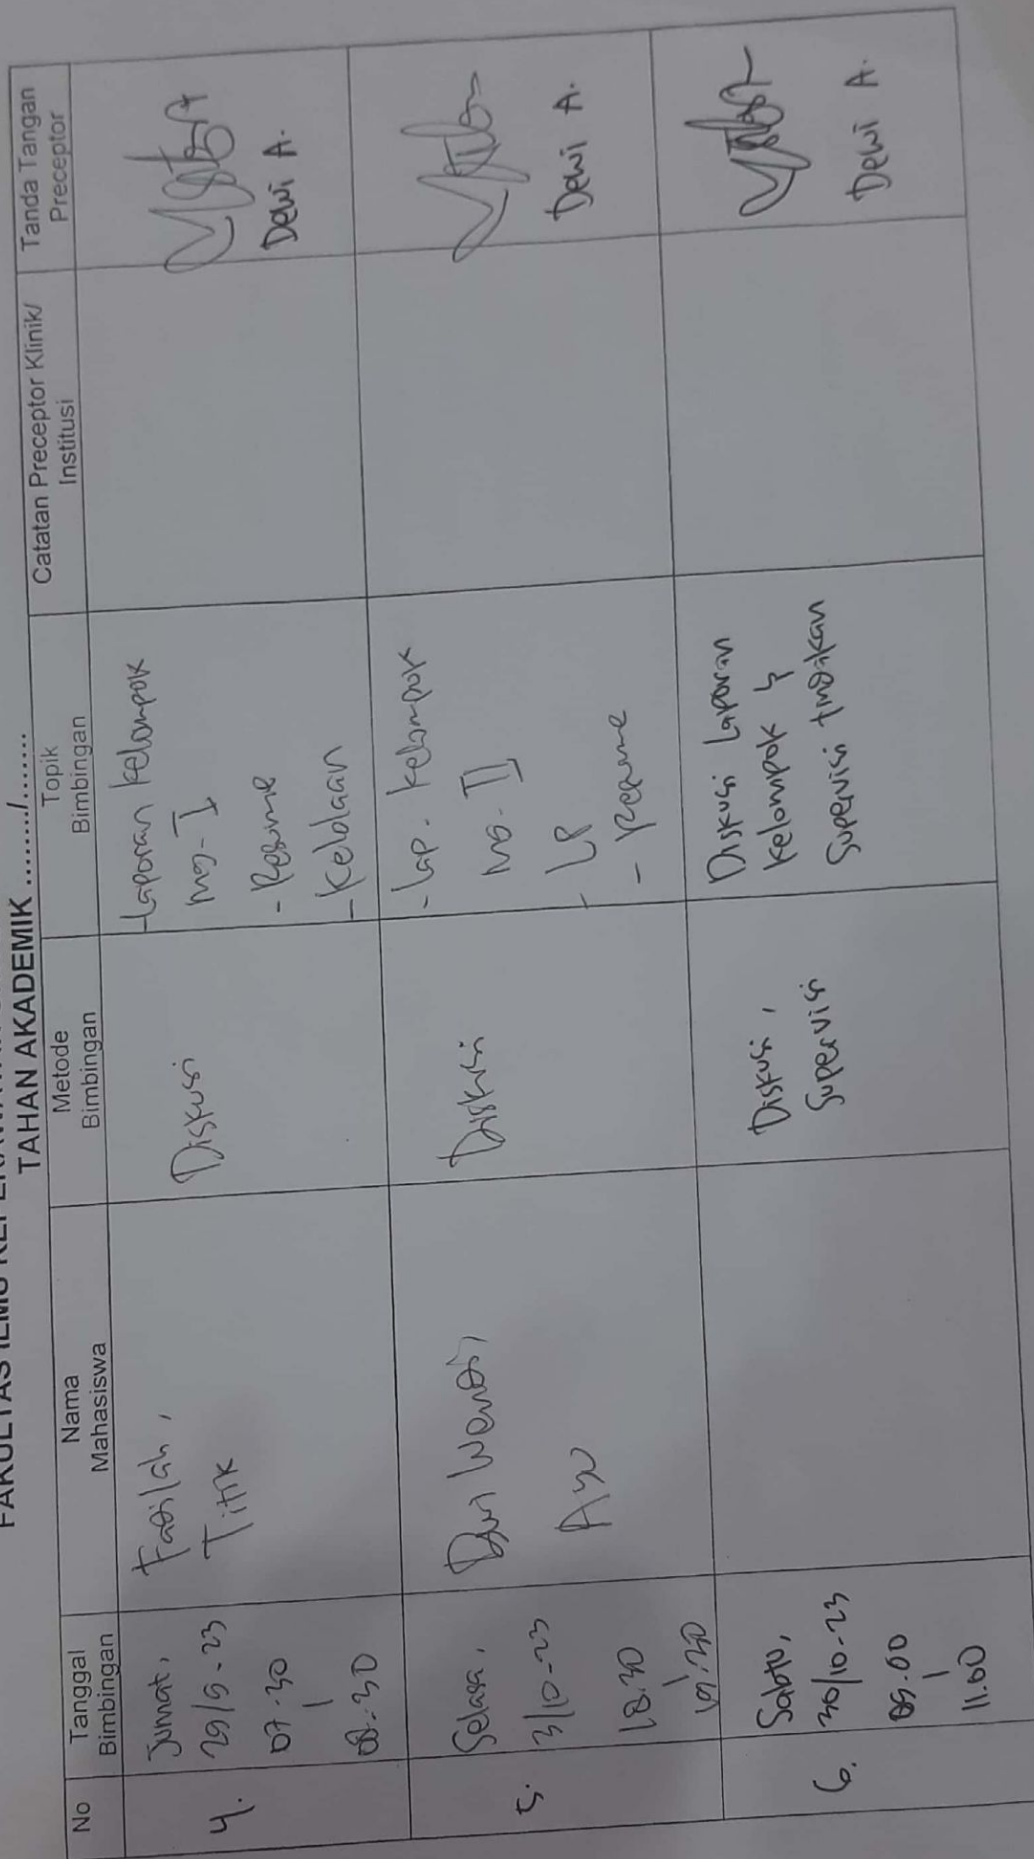 TAHAN AKADEMIK ......../........
No
Tanggal
Bimbingan
Nama
Mahasiswa
Metode
Bimbingan
Topik
Bimbingan
Catatan Preceptor Klinik/
Institusi
Tanda Tangan
Preceptor
4.
Jumat,
29/9-23
07.30
|
08.30
Fadilah,
Titik
Diskusi
- Laporan kelompok
mg-I
- Resume
- Kelolaan
Dewi A.
5.
Selasa,
3/10-23
18.30
|
19.30
Ayu
Diskusi
- Lap. kelompok
mg-II
- LP
- Resume
Dewi A.
6.
Sabtu,
30/10-23
09.00
|
11.00
Diskusi,
Supervisi
Diskusi Laporan
kelompok &
Supervisi tindakan
Dewi A.